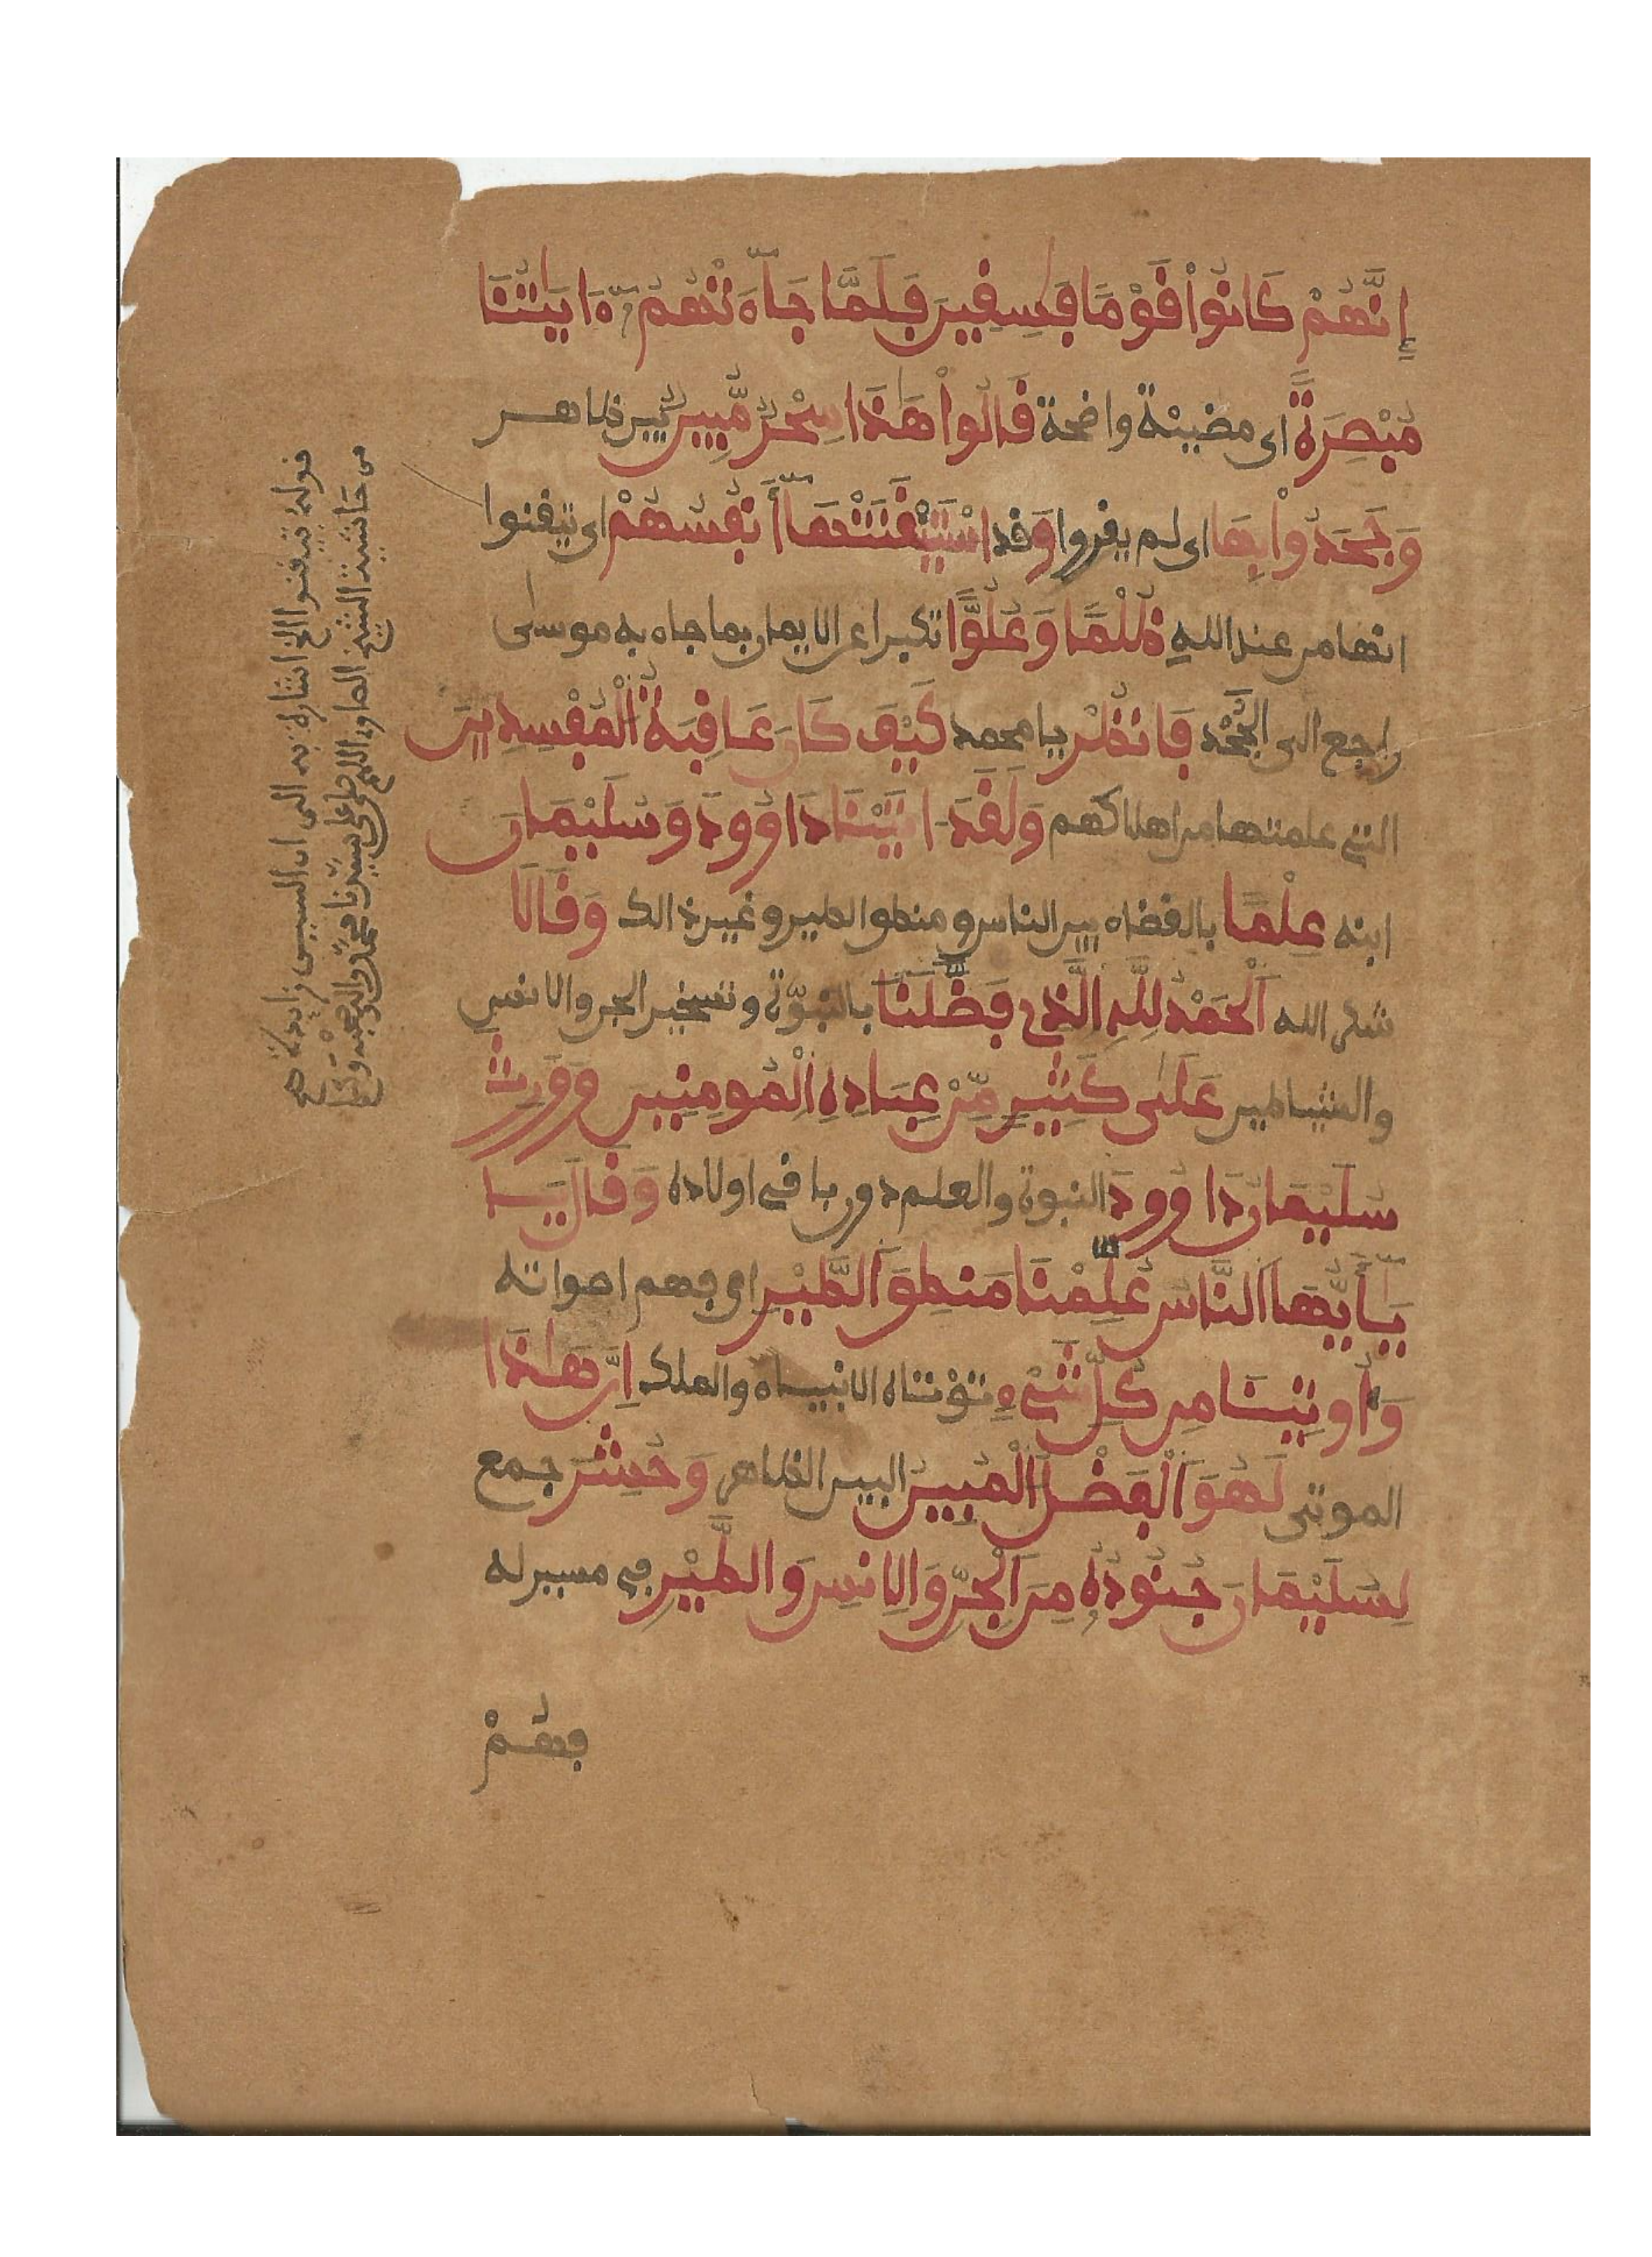 إِنَّهُمْ كَانُواْ قَوْمًا فَٰسِقِينَ فَلَمَّا جَآءَتْهُمُ ءَايَٰتُنَا
مُبْصِرَةً اى مضيئة واضحة قَالُواْ هَٰذَا سِحْرٌ مُّبِينٌ بين ظاهر
وَجَحَدُواْ بِهَا اى لم يقروا وَ قد اسْتَيْقَنَتْهَآ أَنفُسُهُمْ اى تيقنوا
انها من عند الله ظُلْمًا وَعُلُوًّا تكبرا عن الايمان بما جاء به موسى
راجع الى الجَحْد فَانظُرْ يا محمد كَيْفَ كَانَ عَاقِبَةُ الْمُفْسِدِينَ
التى علمتها من اهلاكهم وَلَقَدَ اتَيْنَا دَاوُودَ وَسُلَيْمَانَ
ابنه عِلْمًا بالقضاء بين الناس و منطق الطير و غير ذالك وَقَالَا
شكر الله اَلْحَمْدُ لِلَّهِ الَّذِى فَضَّلَنَا بالنبوّة وتسخير الجن والانس
والشياطين عَلَىٰ كَثِيرٍ مِّنْ عِبَادِهِ اِلْمُومِنِينَ وَوَرِثَ
سُلَيْمَانُ دَاوُودَ النبوة والعلم دون باقى اولاده وَقَالَ يَـــا
يَـٰٓأَيُّهَا اَلنَّاسُ عُلِّمْنَا مَنطِقَ اَلطَّيْرِ اى فهم اصواته
وَأُوتِينَا مِن كُلِّ شَىْءٍ تؤتاه الانبياء والملك إِنَّ هَٰذَا
الموتى لَهُوَ اَلْفَضْلُ اُلْمُبِينُ البين الظاهر وَحُشِرَ جمع
لِسُلَيْمَانَ جُنُودُهُ مِنَ اَلْجِنِّ وَالِانسِ وَالطَّيْرِ فى مسير له
فهُمْ
قوله تيقنوا الخ اشارة به الى ان السين زائدة اهـ
من حاشية الشيخ الصاوى اللهم صل على سيدنا محمد واله وصحبه و